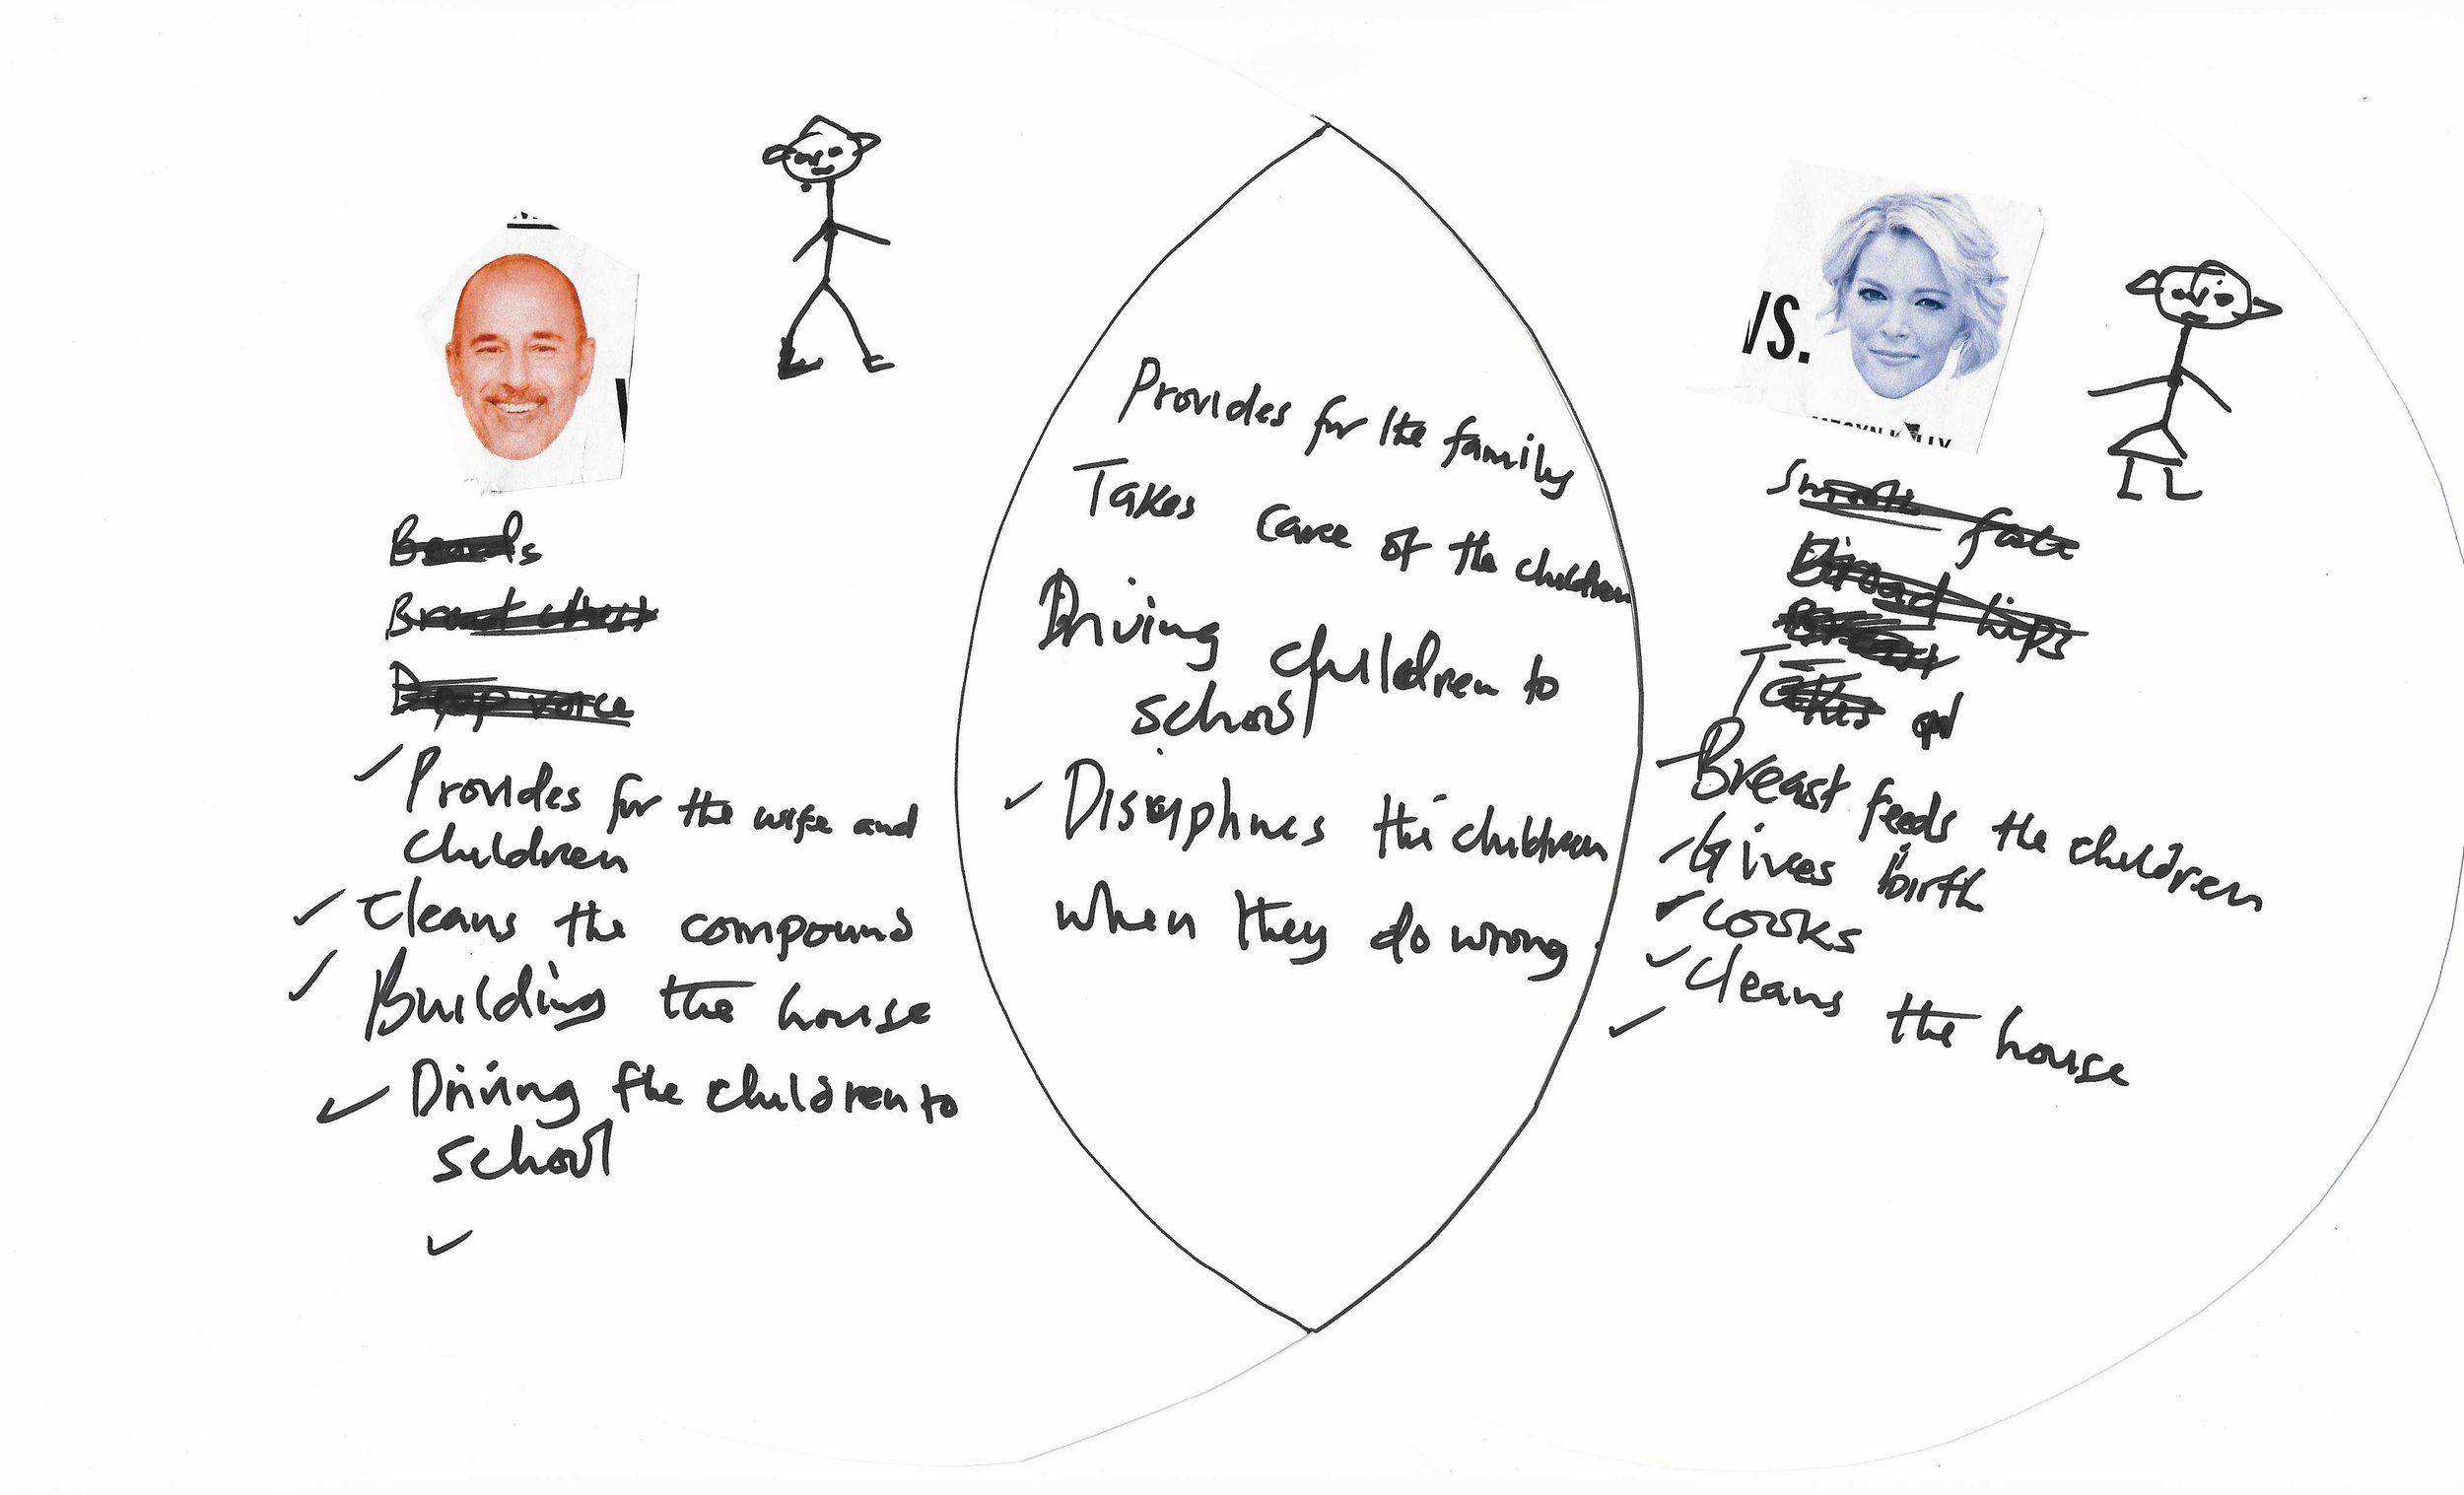 Beards
Broad chest
Deep voice
Provides for the wife and
children
Cleans the compound
Building the house
Driving the children to
school
Provides for the family
Takes caree of the children
Driving children to
school
Disciplines the children
when they do wrong.
VS.
Smooth face
Broad hips
Breast
Takes
Breast feeds the children
Gives birth
cooks
Cleans the house